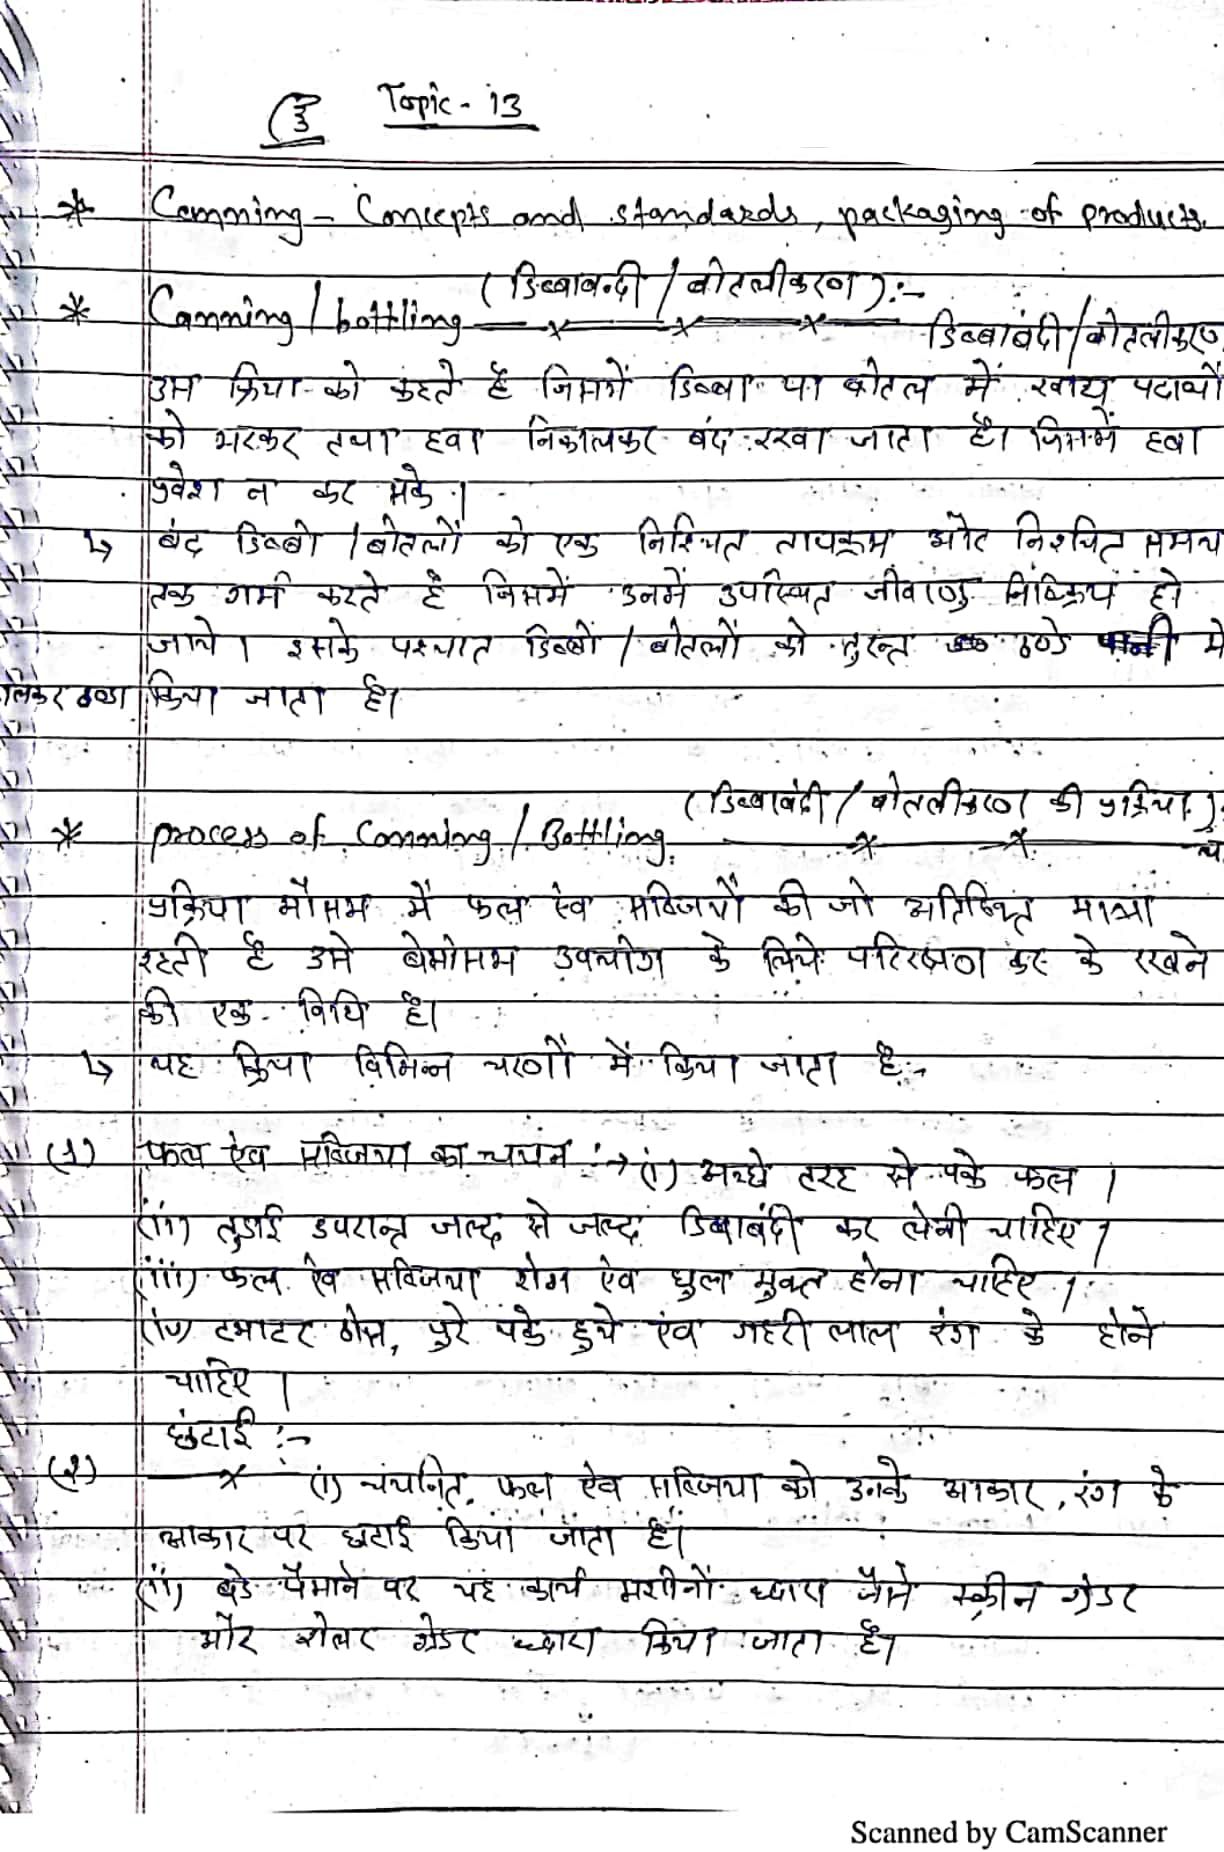 Topic - 13
* Canning - Concepts and standards, packaging of products.
(डिब्बाबन्दी / बोतलीकरण ) :-
* Canning / bottling
डिब्बाबंदी / बोतलीकरण
उस क्रिया को कहते है जिसमें डिब्बा या बोतल में खाद्य पदार्थो
को भरकर तथा हवा निकालकर बंद रखा जाता है। जिसमें हवा
प्रवेश न कर सके ।
↳ बंद डिब्बो / बोतलों को एक निश्चित तापक्रम और निश्चित समय
तक गर्म करते है जिसमें उनमें उपस्थित जीवाणु निष्क्रिय हो
जाये । इसके पश्चात डिब्बों / बोतलों को तुरन्त ठण्डे पानी मे
किया जाता है।
(डिब्बाबंदी / बोतलीकरण की प्रक्रिया )
* process of Canning / Bottling
प्रक्रिया मौसम में फल ऐव सब्जियों की जो अतिरिक्त मात्रा
रहती है उसे बेमौसम उपयोग के लिये परिरक्षण कर के रखने
की एक विधि है।
↳ यह क्रिया विभिन्न चरणों में किया जाता है:-
(1) फल ऐव सब्जिया का चयन :→ (i) अच्छे तरह से पके फल ।
(ii) तुडाई उपरान्त जल्द से जल्द डिब्बाबंदी कर लेनी चाहिए ।
(iii) फल ऐव सब्जिया रोग ऐव धुल मुक्त होना चाहिए ।
(iv) टमाटर ठोस, पुरे पके हुये एंव गहरी लाल रंग के होने
चाहिए ।
छंटाई :-
(2) (i) चयनित, फल ऐव सब्जिया को उनके आकार, रंग के
आकार पर छटाई किया जाता है।
(ii) बडे पैमाने पर यह कार्य मशीनों ध्दारा जैसे स्क्रीन ग्रेडर
और रोलर ग्रेडर ध्दारा किया जाता है।
Scanned by CamScanner